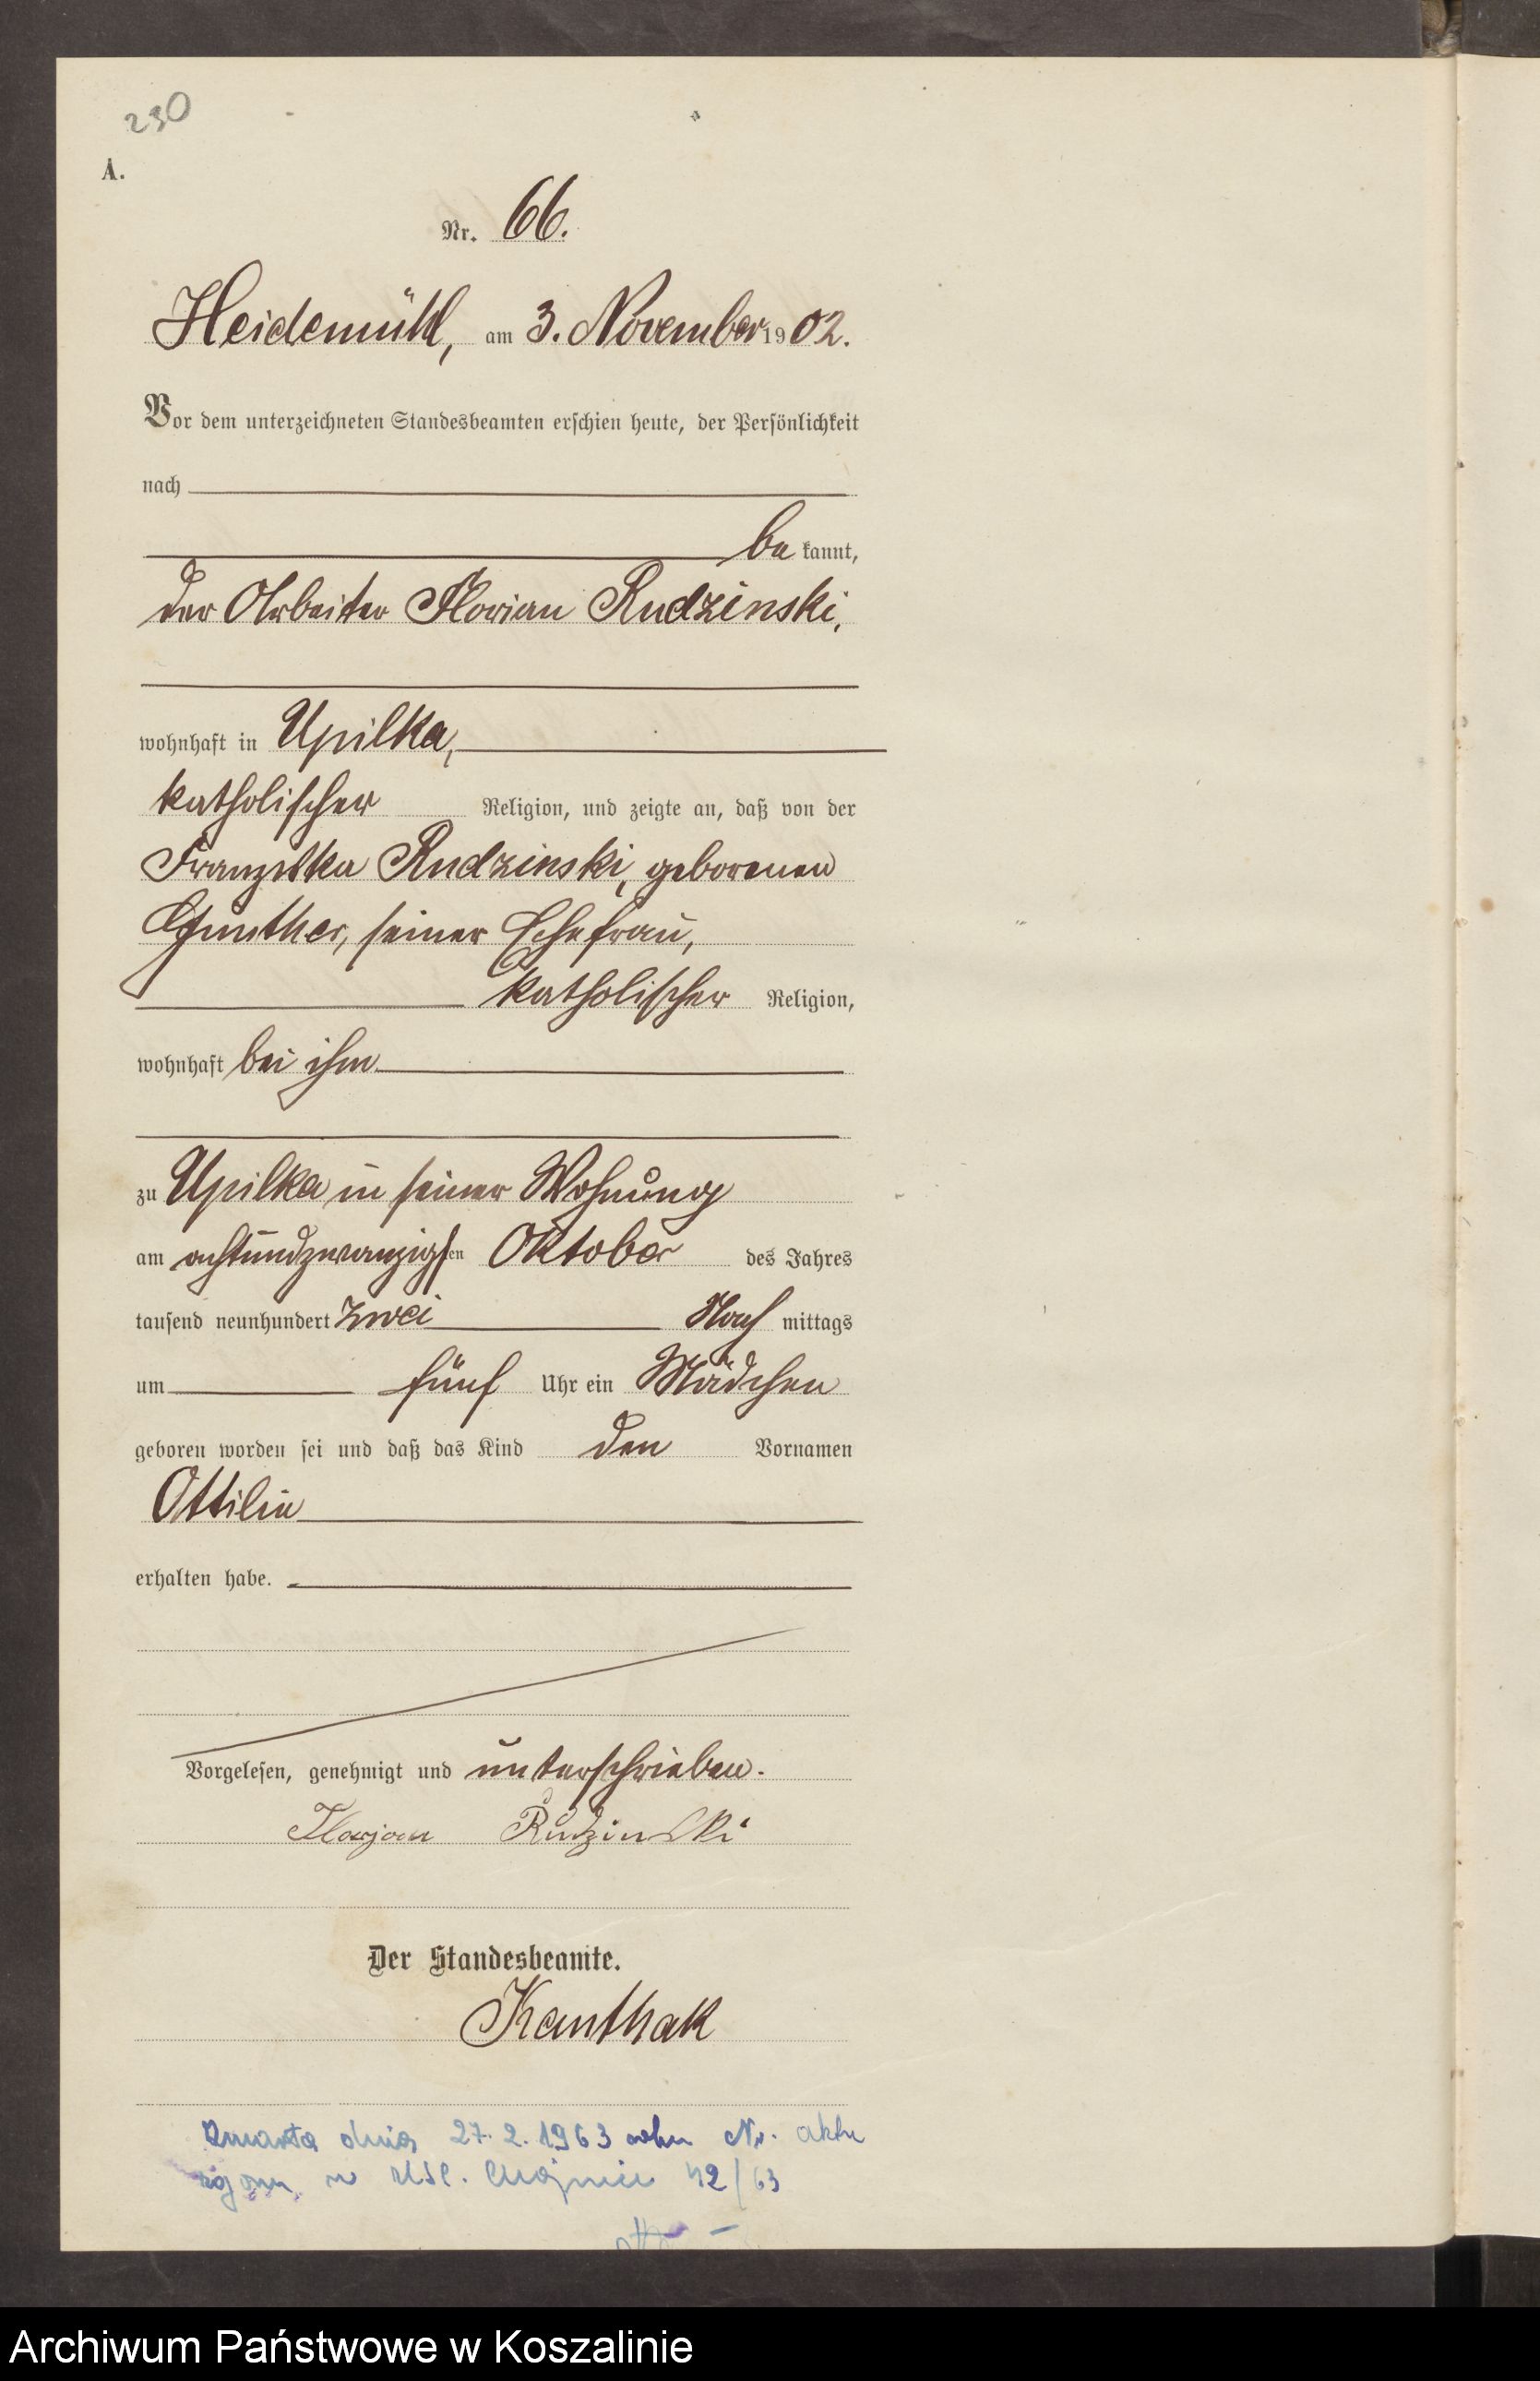 230
A.
Nr. 66.
Heidemühl, am 3. November 1902.
Vor dem unterzeichneten Standesbeamten erschien heute, der Persönlichkeit
nach
be kannt,
der Arbeiter Florian Rudzinski,
wohnhaft in Upilka,
katholischer Religion, und zeigte an, daß von der
Franziska Rudzinski, geborenen
Günther, seiner Ehefrau,
katholischer Religion,
wohnhaft bei ihm
zu Upilka in seiner Wohnung
am achtundzwanzigsten Oktober des Jahres
tausend neunhundert zwei Nach mittags
um fünf Uhr ein Mädchen
geboren worden sei und daß das Kind den Vornamen
Ottilie
erhalten habe.
Vorgelesen, genehmigt und unterschrieben.
Florjan Rudzinski
Der Standesbeamte.
Kanthak
Zmarła dnia 27.2.1963 roku Nr. aktu
zgonu w USC. Chojnice 42/63
Archiwum Państwowe w Koszalinie